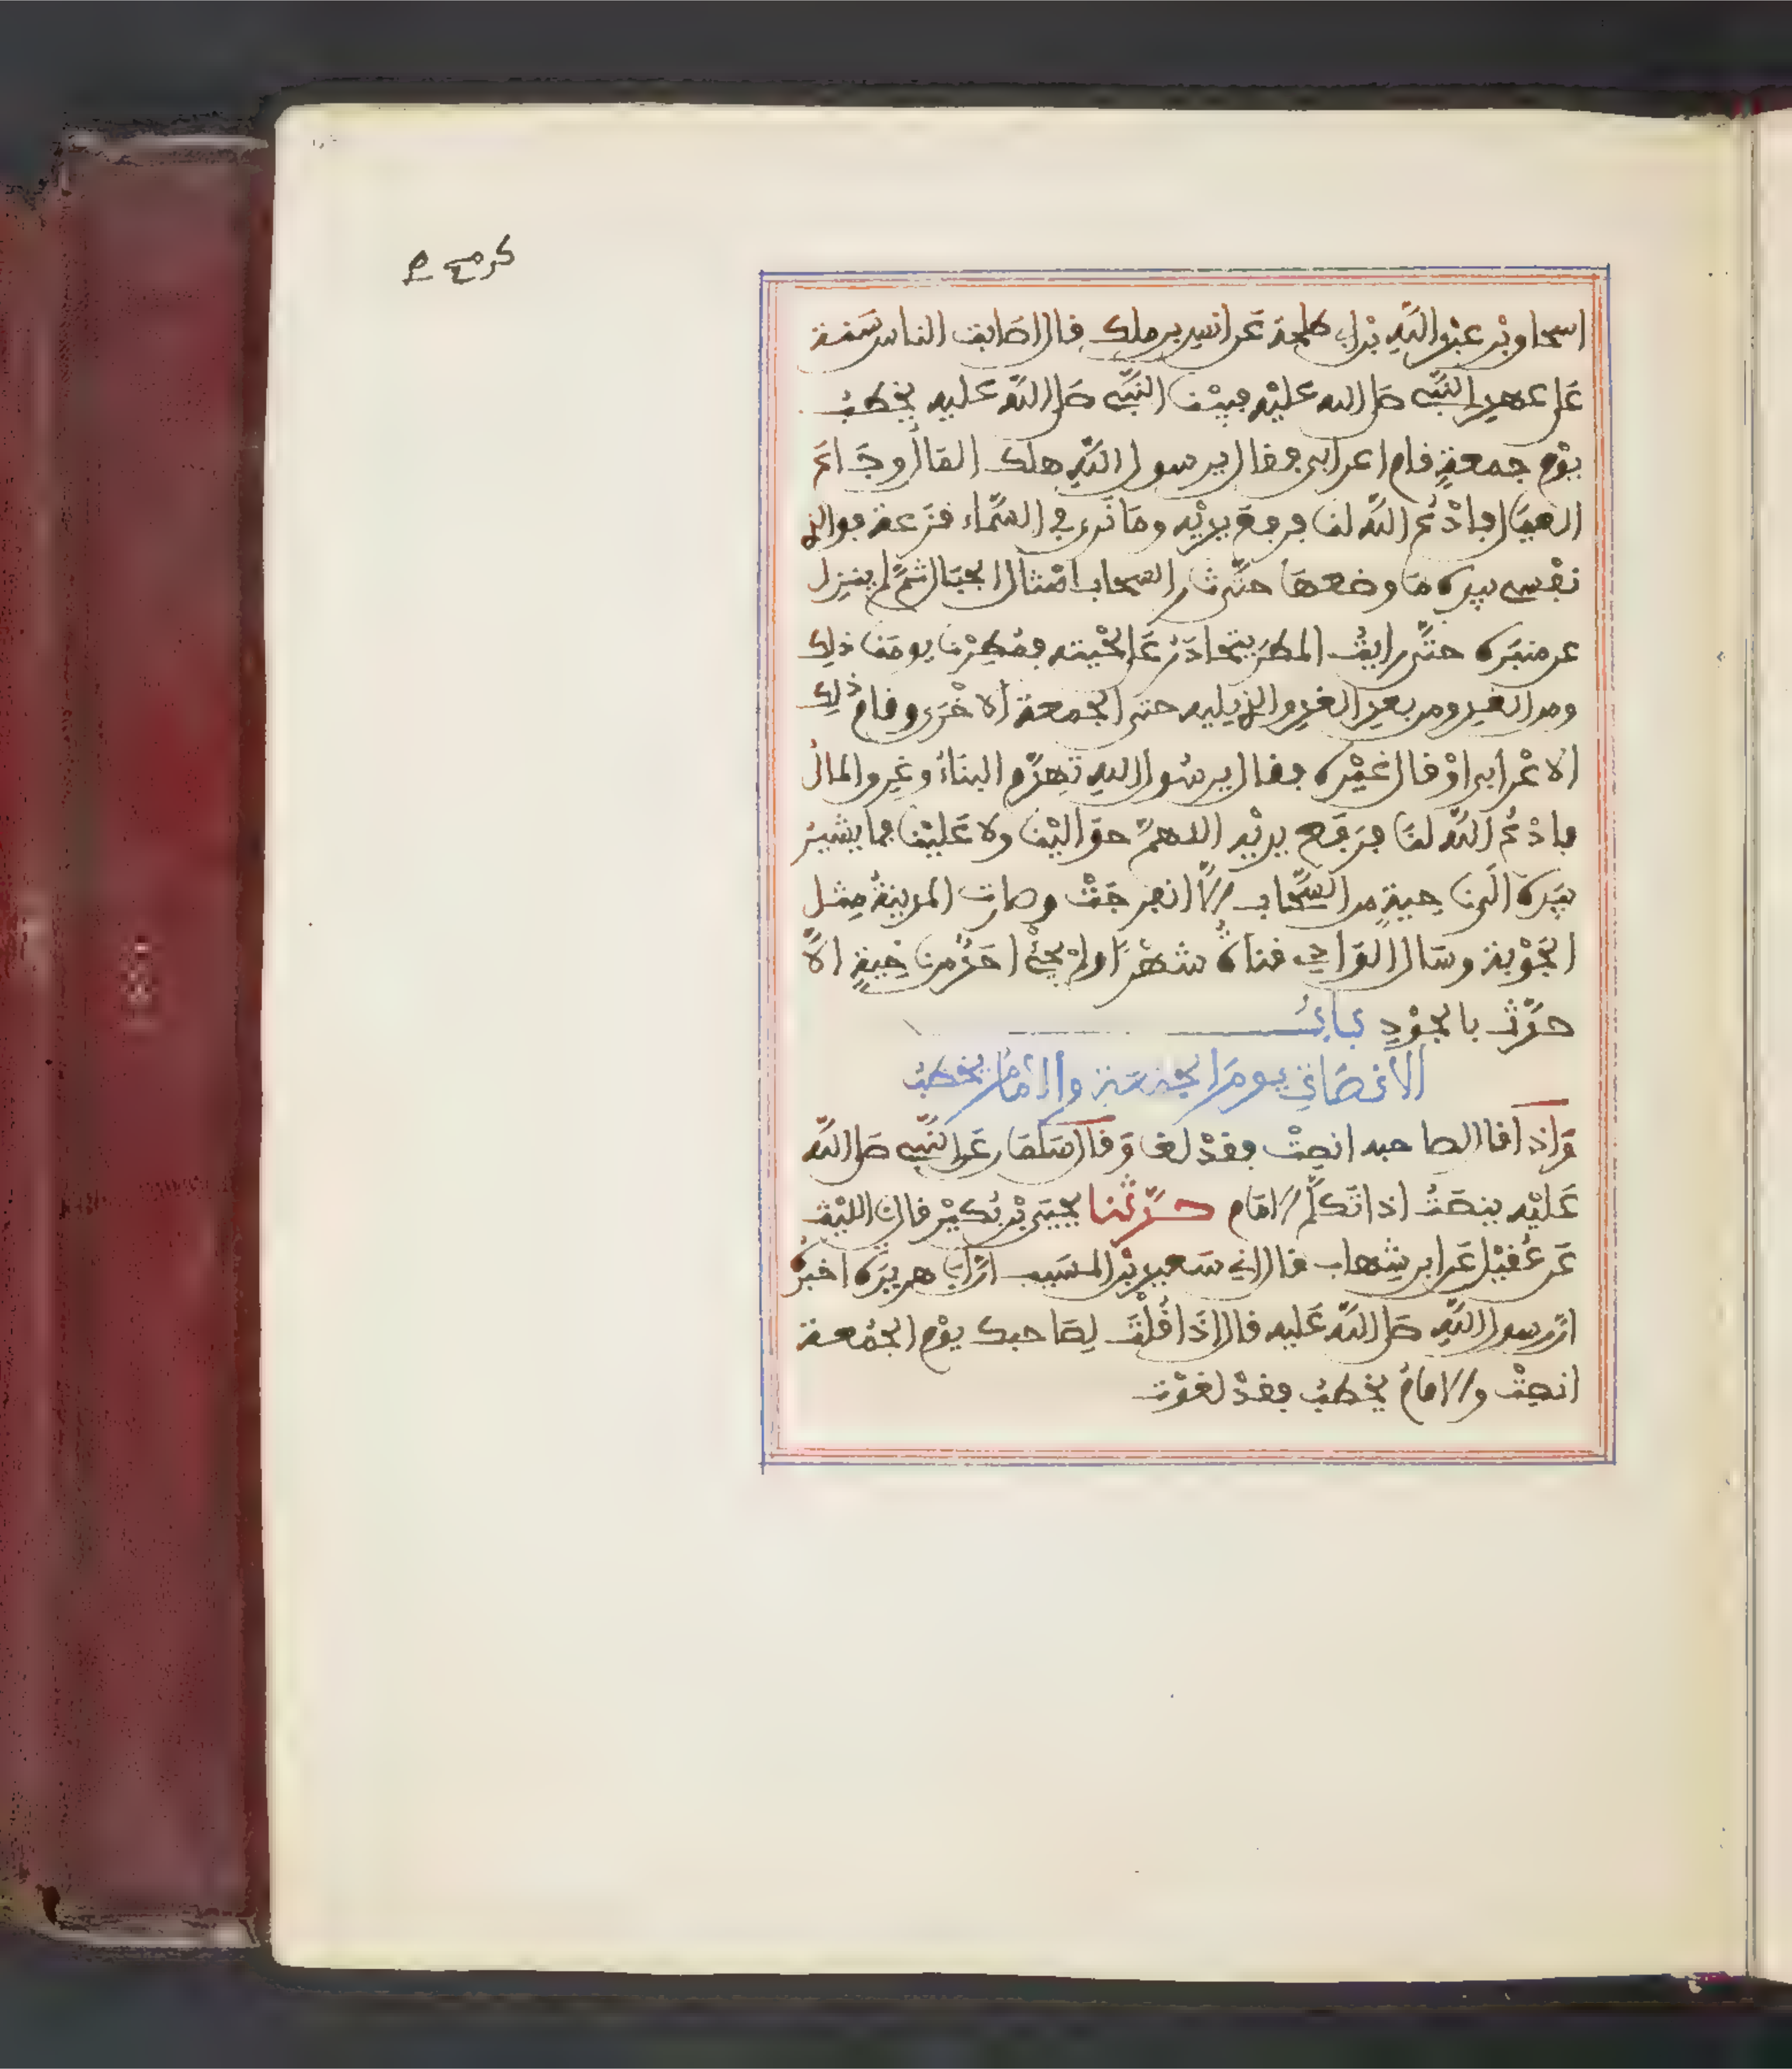 اسحاق بْن عبْد اللَّهِ بْن أبي طلحة عَن انس بن ملك قال اصَابت الناس سَنة
عَلى عهدِ النَّبِيِّ صَلى الله عليْه فبيْنا النَّبِيُّ صَلى اللَّهُ عليه يخطبُ
يوْم جمعةٍ قام اعرابي فقال يرسول اللَّهِ هلك المَالُ وجَاعَ
العيَال فادْعُ اللَّه لنا فرفعَ يديْه ومَا نَرى في السَّمَاء قزَعة فوالذي
نفْسي بيده مَا وضعهَا حتَّى ثار السَّحاب امْثال الجبَال ثمَّ لم ينزِل
عن منبَره حتَّى رايْتُ المطرَ يتحَادَرُ عَلى لحْيته فمُطِرْنا يومَنا ذلِك
ومن الغَدِ ومن بعدِ الغدِ والذي يليه حتى الجمعة الاخْرَى وقام ذلِك
الاعْرابي اوْ قال غيْره فقال يرسُول اللهِ تَهدَّم البنَاءُ وغرِق المالُ
فادْعُ اللَّه لنَا فرَفَع يديْه اللهمَّ حوَاليْنا ولا عَليْنا فما يشيرُ
بيَده الَى ناحِيةٍ من السَّحَاب الَّا انفرجَتْ وصارت المدينةُ مِثل
الجَوْبة وسَال الوَادِي قناةُ شهْرًا ولمْ يجئْ احَدٌ من ناحِيةٍ الَّا
حدَّث بالجَوْدِ بَابُ
الانصَاتِ يومَ الجمعَة والامَامُ يخطبُ
وَاذا قال لصاحبه انصِتْ فقدْ لغا وَقال سَلمَان عَن النَّبِيِّ صَلى اللَّه
عَليْه ينصتُ اذا تَكلَّم الامَام حدَّثنا يحيَى بْن بُكيْر قال نا الليْث
عَن عُقيْل عَن ابن شِهاب قال اني سَعيد بْن المسَيب انَّ أبَا هريرَة اخبرَه
انَّ رسول اللَّهِ صَلى اللَّه عَليه قال اذَا قُلْتَ لِصَاحبك يوْم الجُمُعة
انصِتْ والامامُ يخطبُ فقدْ لغوْت